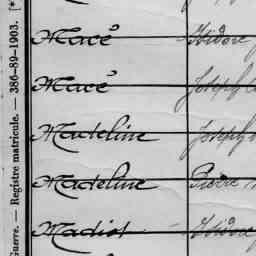 Guerre. — Registre matricule. — 386-89-1903. [*
Macé Isidore
Macé Joseph
Madeline Joseph
Madeline Pierre
Madiot Isidore